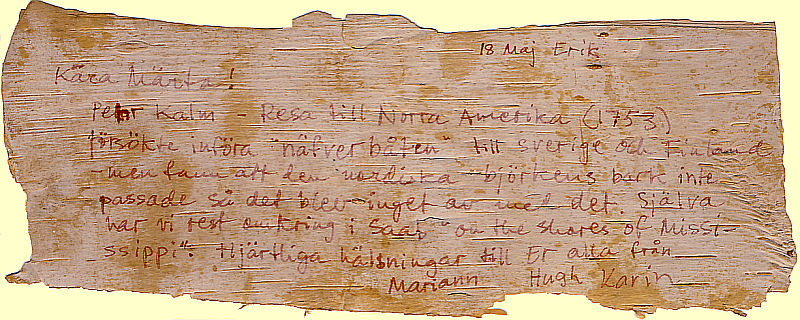 18 Maj Erik
Kära Märta!
Pehr Kalm - Resa till Norra Amerika (1753)
försökte införa "näfverbåten" till Sverige och Finland
- men fann att den nordiska björkens bark inte
passade så det blev inget av med det. Själva
har vi rest omkring i Saab "on the shores of Missi-
ssippi". Hjärtliga hälsningar till Er alla från
Mariann Hugh Karin